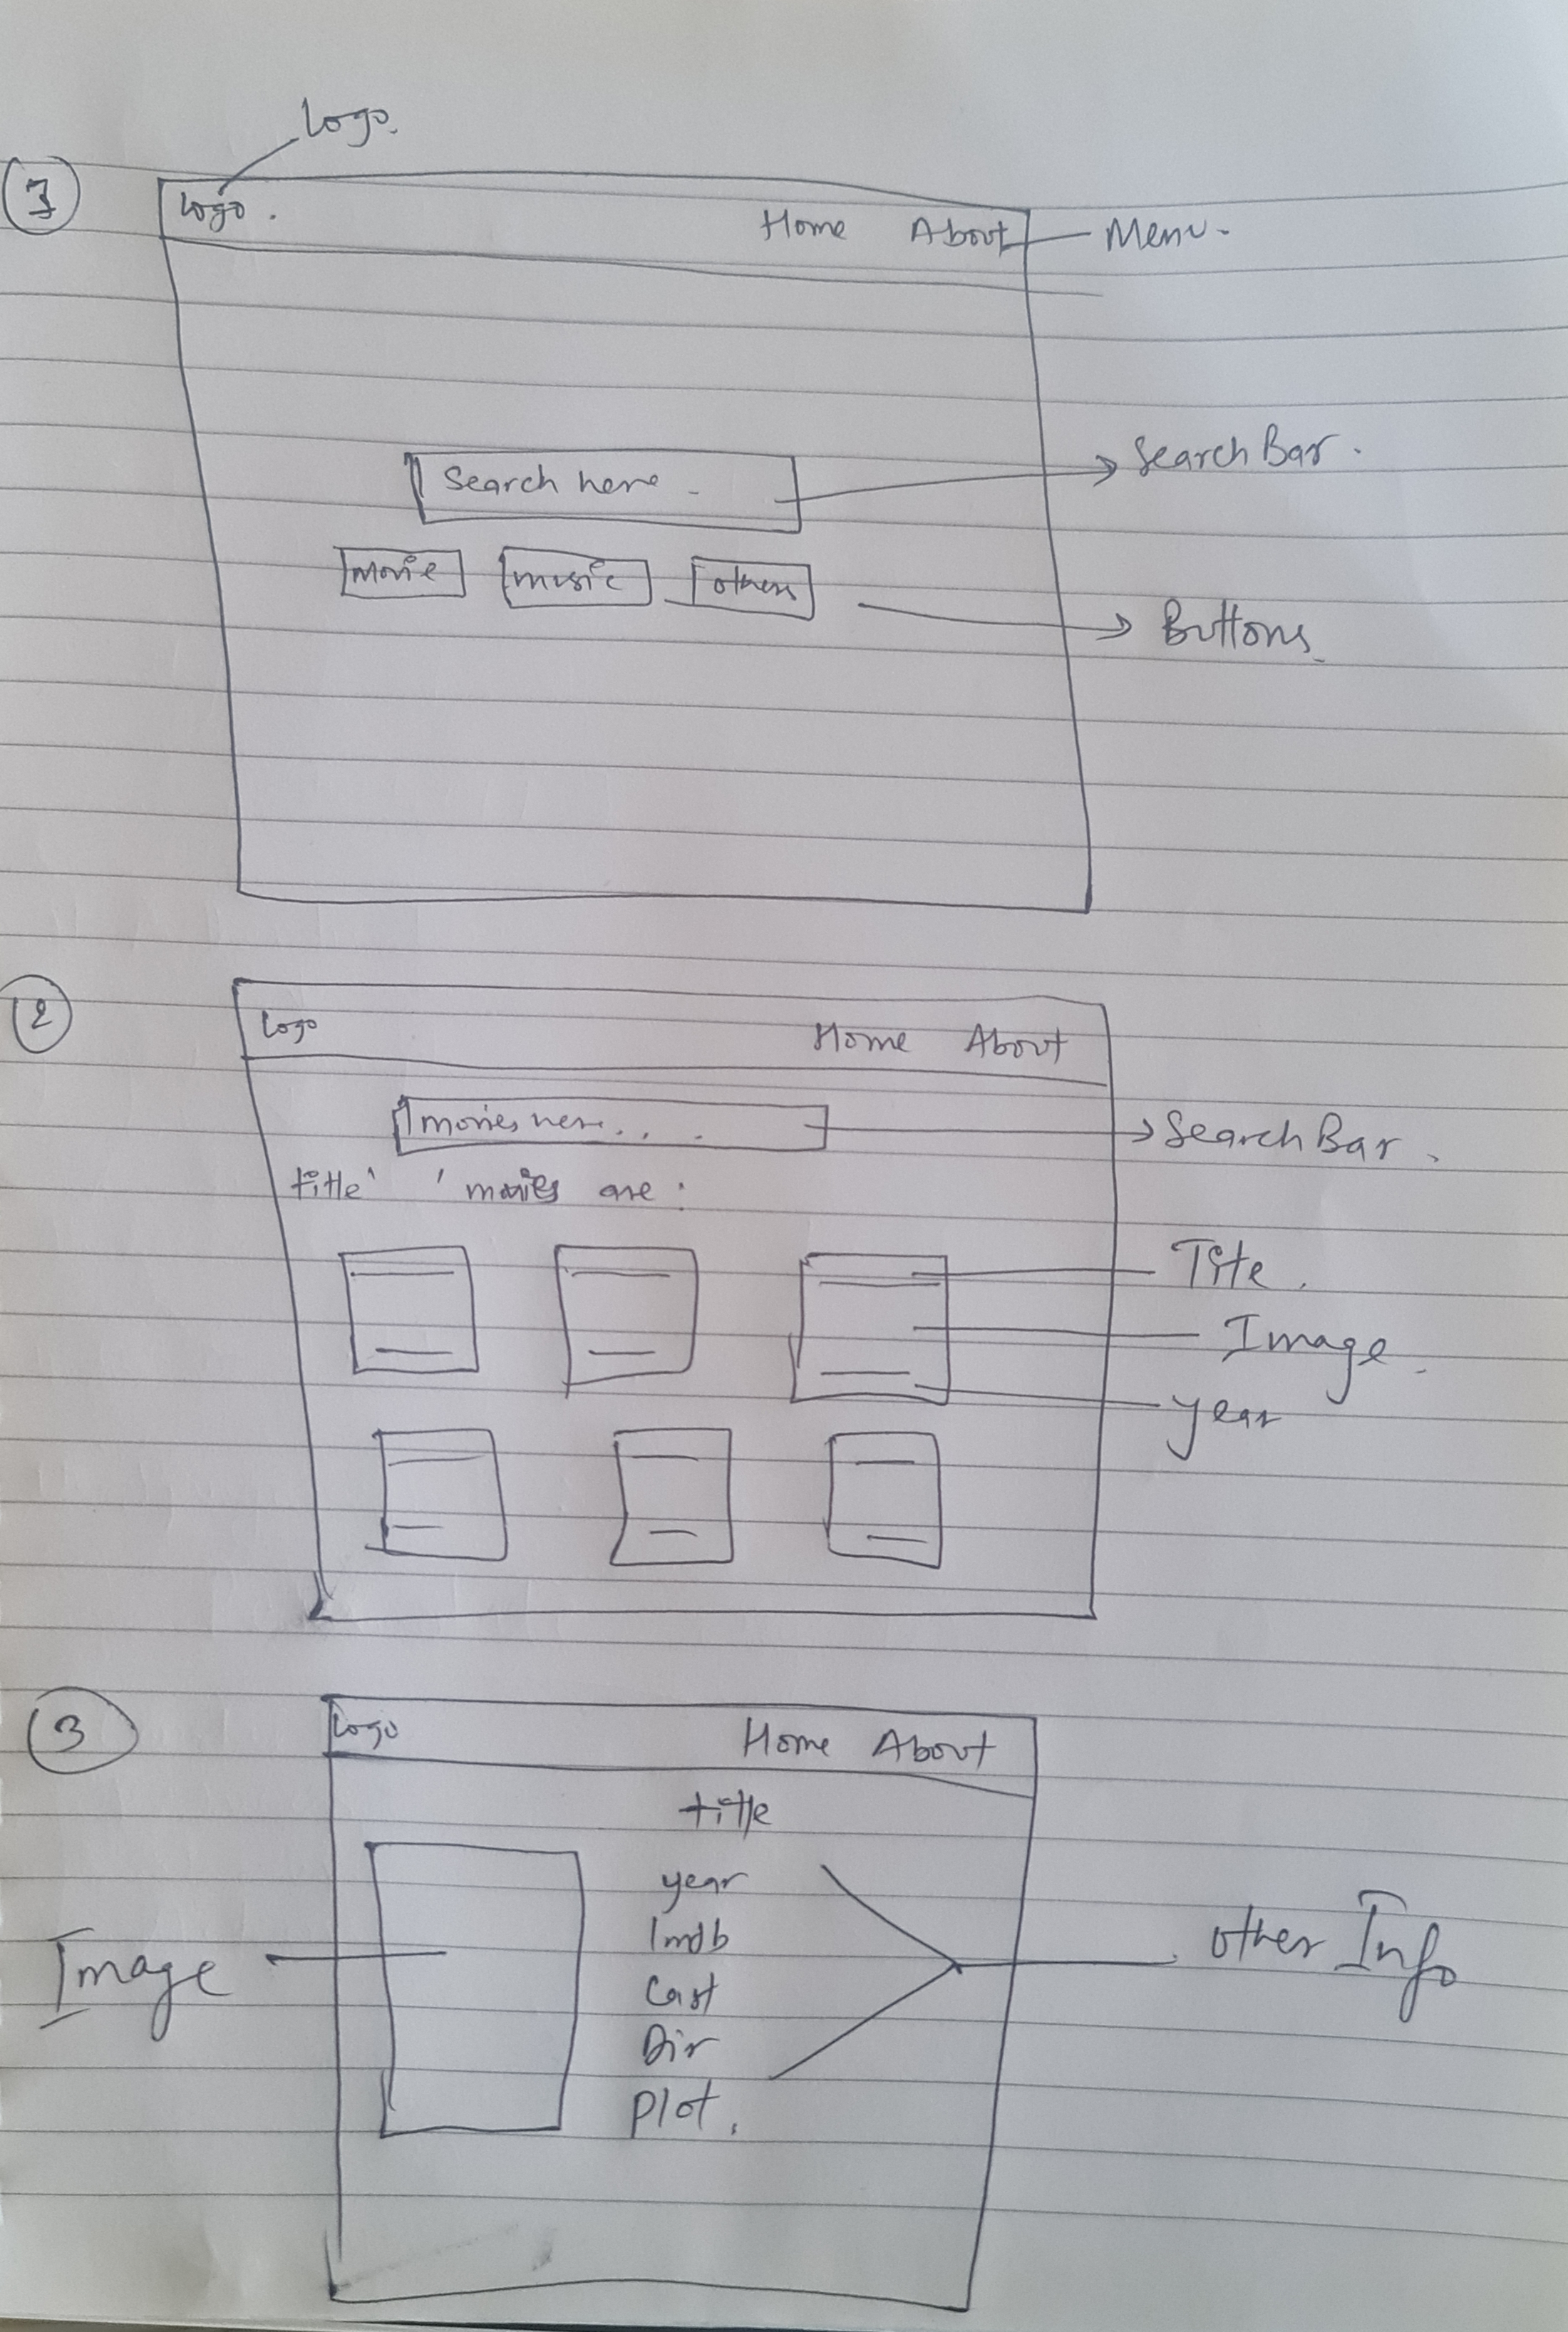 Logo.
1
Logo. Home About Menu.
Search here Search Bar.
movie music others
Buttons
2
Logo Home About
movies here... Search Bar.
title' ' movies are:
Tite.
Image.
year
3
Logo Home About
title
year
Imdb
Image other Info
Cast
Dir
plot.